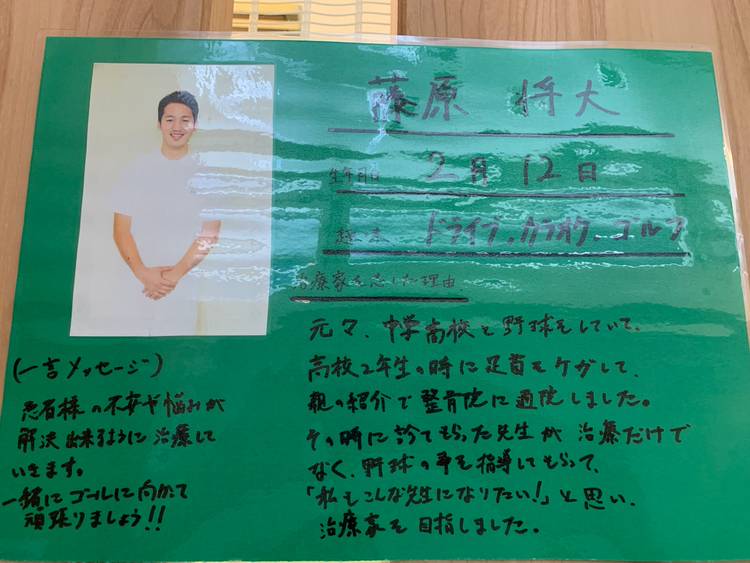 藤原 将大
生年月日 2月 12日
趣味 ドライブ、カラオケ、ゴルフ
治療家を志した理由
元々、中学高校と野球をしていて、
高校2年生の時に足首をケガして、
親の紹介で整骨院に通院しました。
その時に診てもらった先生が治療だけで
なく、野球の事も指導してもらって、
「私もこんな先生になりたい!」と思い、
治療家を目指しました。
(一言メッセージ)
患者様の不安や悩みが
解決出来るように治療して
いきます。
一緒にゴールに向かって
頑張りましょう!!